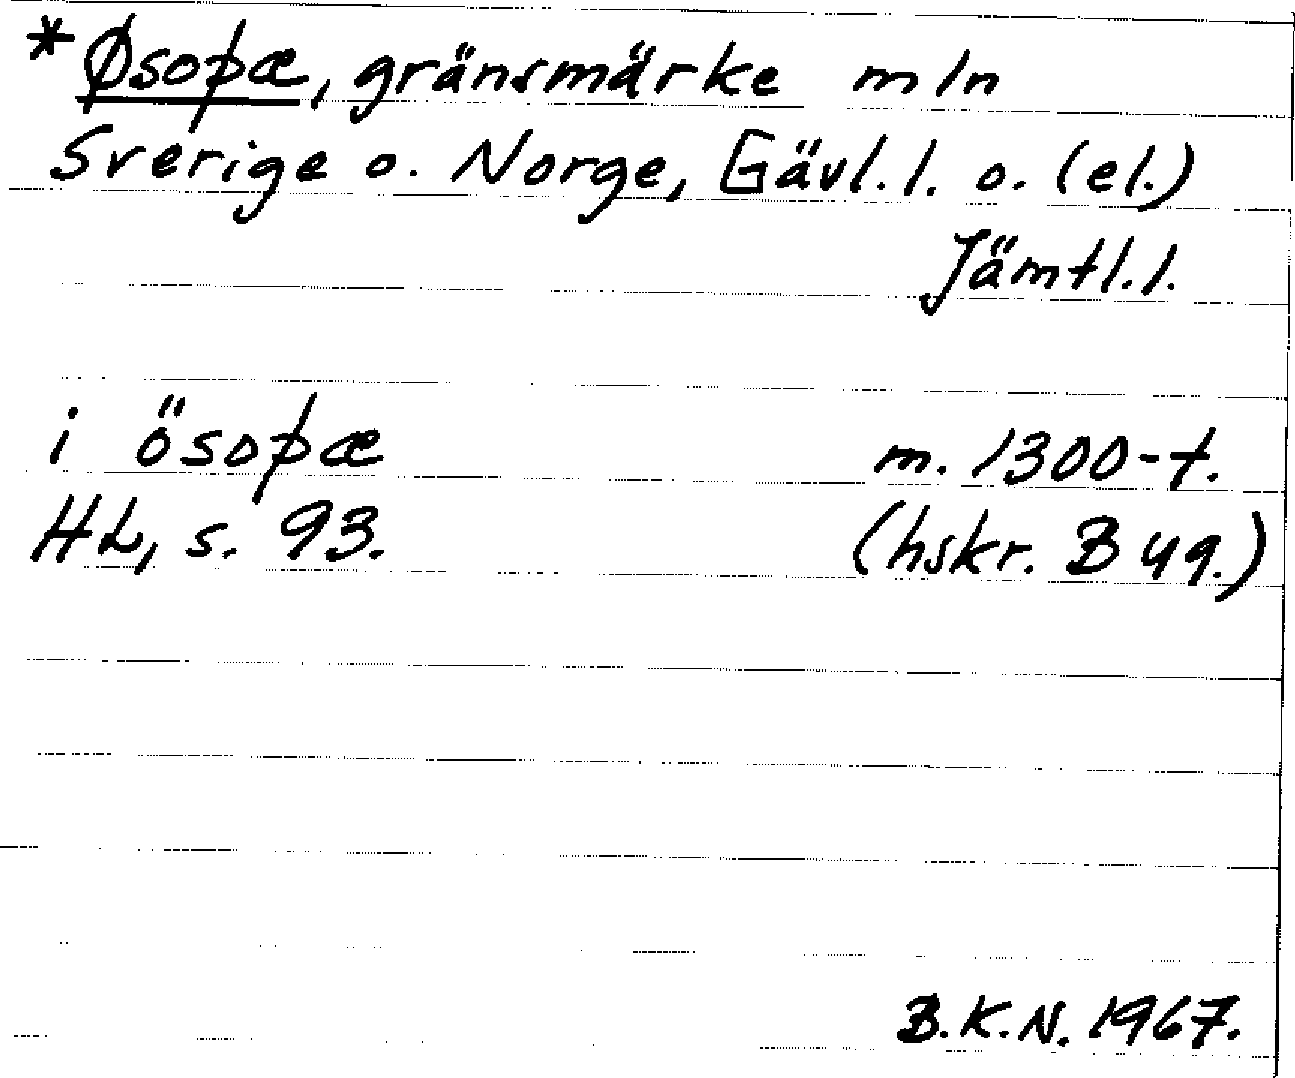 *Øsoþæ, gränsmärke mln
Sverige o. Norge, Gävl.l. o. (el.)
Jämtl.l.
i ösoþæ m. 1300-t.
HL, s. 93. (hskr. B 49.)
B.K.N. 1967.